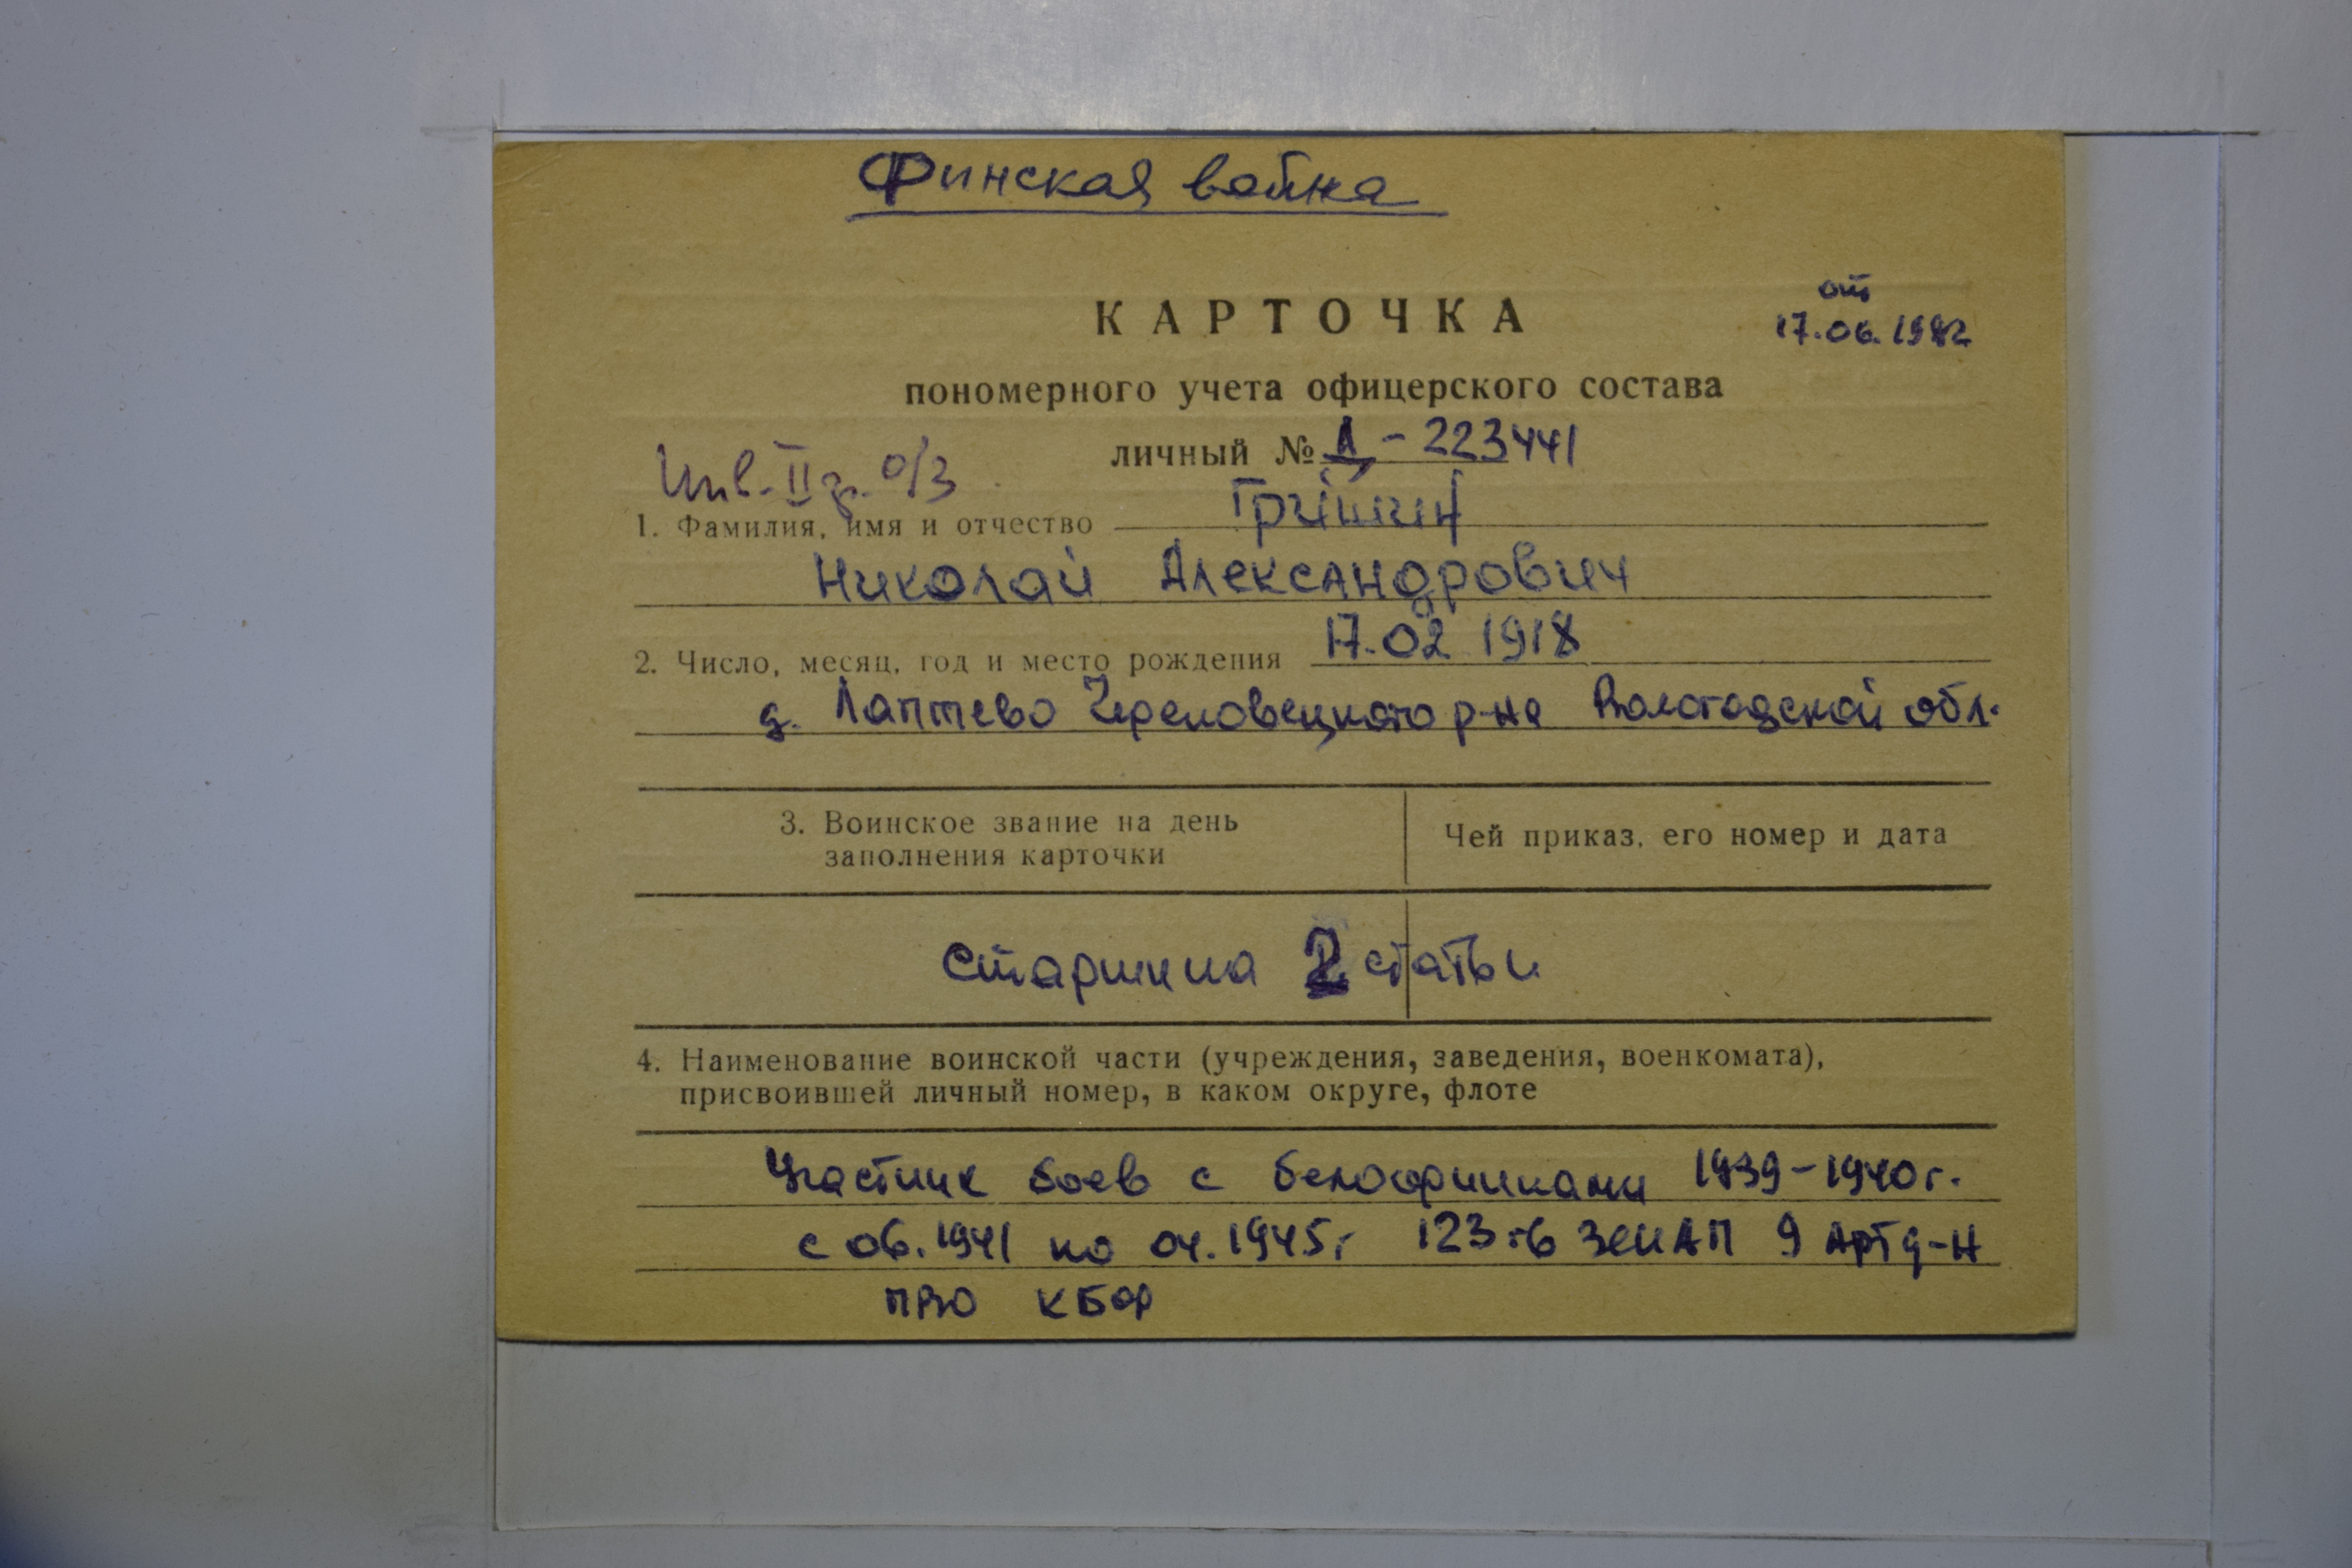 Финская война
КАРТОЧКА
от
17.06.1982
пономерного учета офицерского состава
личный № Д - 223441
Инв. II гр. о/з
1. Фамилия, имя и отчество Гришин
Николай Александрович
2. Число, месяц, год и место рождения 17.02 1918
д. Лаптево Череповецкого р-на Вологодской обл.
3. Воинское звание на день
заполнения карточки
Чей приказ, его номер и дата
Старшина 2 статьи
4. Наименование воинской части (учреждения, заведения, военкомата),
присвоившей личный номер, в каком округе, флоте
Участник боев с белофиннами 1939-1940г.
с 06.1941 по 04.1945г 123 ЗЕНАП 9 Арт д-н
ПВО КБФ